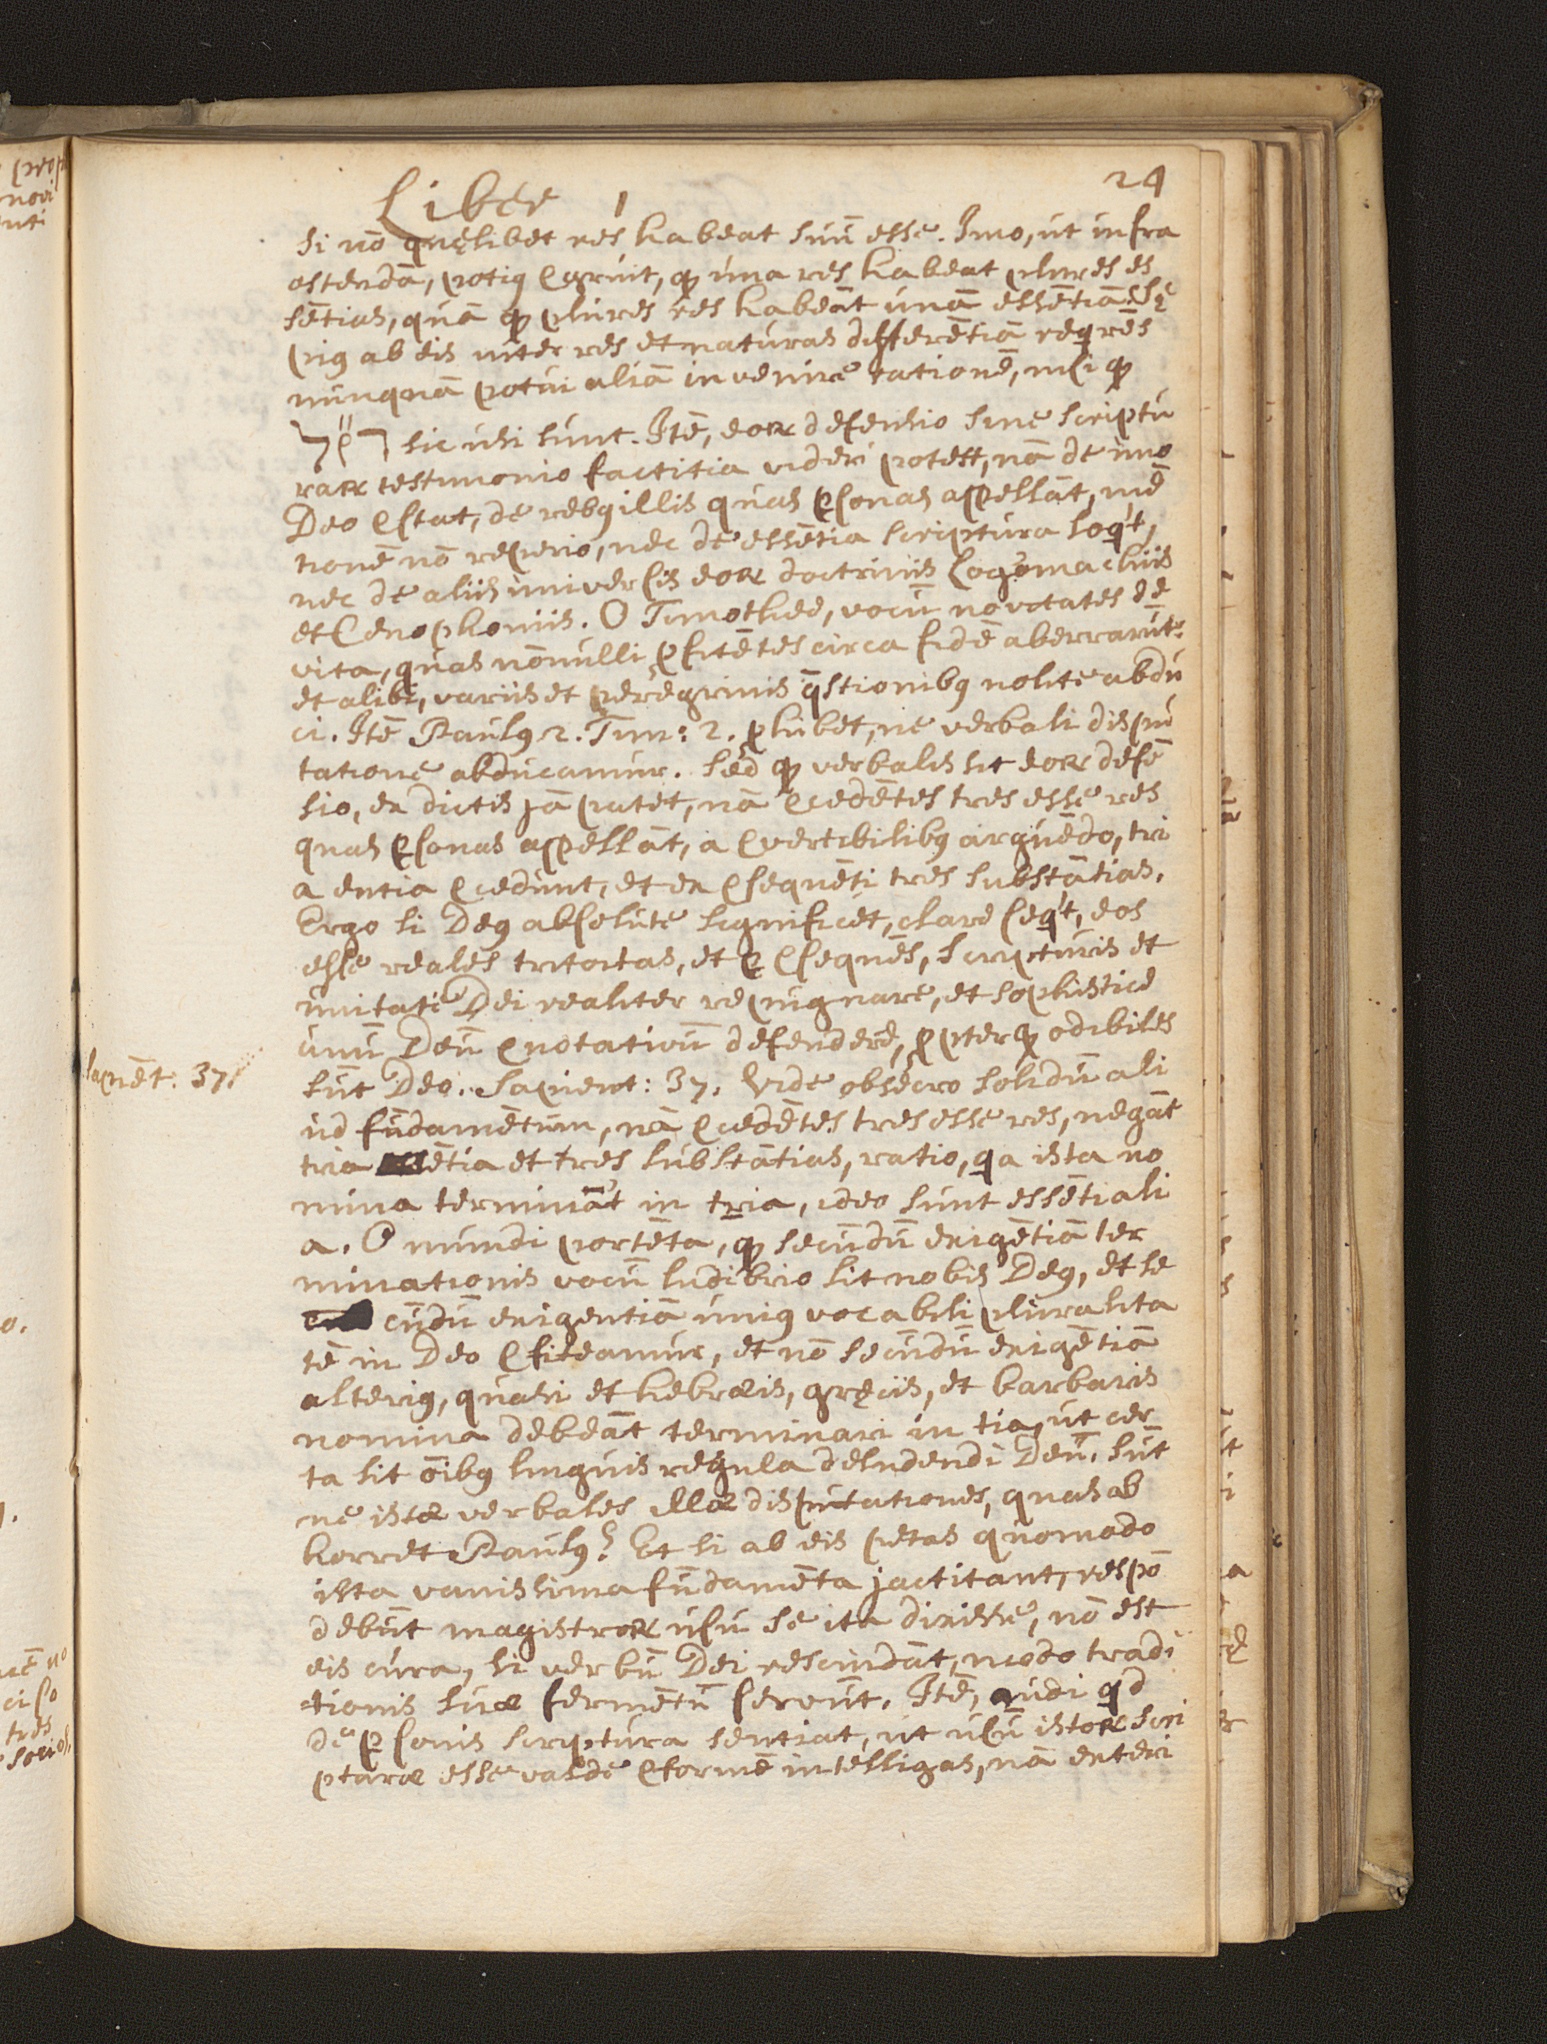 Liber 1
24
si nō quęlibet res habeat suū esse. Imo, ut infra
ostendā, potiꝰ ꝯgruit, ꝙ una res habeat plures es
sētias, quā ꝙ plures res habeāt unā essētiā. Sę
piꝰ ab eis inter res et naturas differētiā reqrēs
nunquā potui aliā invenire rationē, nisi ꝙ
sic visi sunt. Itē, eoꝝ defensio sine scriptu
raꝝ testimonio factitia videri potest, nā de uno
Deo ꝯstat, de rebꝰ illis quas ꝑsonas apellāt, mē
tionē nō reperio, nec de essētia scriptura loqt,
nec de aliis universis eoꝝ doctrinis logomachiis
et Cenophoniis. O Timothee, vocū novitates de
vita, quas nōnulli ꝓfitētes circa fidē aberrarūt:
et alibi, variis et peregrinis q̄stionibꝰ nolite abdu
ci. Itē Paulꝰ 2. Tim: 2. ꝓhibet, ne verbali dispu
tatione abducamur. Sed ꝙ verbalis sit eoꝝ defē
sio, ex dictis jā patet, nā ꝯcedētes tres esse res
quas ꝑsonas apellāt, a ꝯvertibilibꝰ arguēdo, tri
a entia ꝯcedunt, et ex ꝯsequēti tres substātias.
Ergo si Deꝰ absolute significet, clare seqt, eos
esse reales tritoitas, et ꝑ ꝯsequēs, scripturis et
unitati Dei realiter repugnare, et sophistice
unū Deū ꝯnotativū defendere, ꝓpter ꝙ odibiles
sūt Deo. Sapient: 37. Vide obsecro solidū ali
ud fūdamētum, nā ꝯcedētes tres esse res, negāt
tria ētia et tres substātias, ratio, qa ista no
mina terminat in tria, ideo sunt essētiali
a. O mundi portēta, ꝙ secūdū exigētiā ter
minationis vocū ludibrio sit nobis Deꝰ, et se
cūdū exigentiā uniꝰ vocabuli pluralita
tē in Deo ꝯfiteamur, et nō secūdū exigētiā
alteriꝰ, quasi et hebræis, gręcis, et barbaris
nomina debeāt terminari in tia, ut cer
ta sit oībꝰ linguis regula deludendi Deū. Sūt
ne istæ verbales illæ disputationes, quas ab
horret Paulꝰ? Et si ab eis petas quomodo
ista vanissima fūdamēta jactitant, respō
debūt magistroꝝ usu se ita dixisse, nō est
eis cura, si verbū Dei rescindāt, modo tradi
tionis suæ fermētū servēt. Itē, audi qd
de ꝑsonis scriptura sentiat, ut usū istoꝝ scri
pturæ esse valde ꝯformē intelligas, nā exteri
Sapiēt: 37.